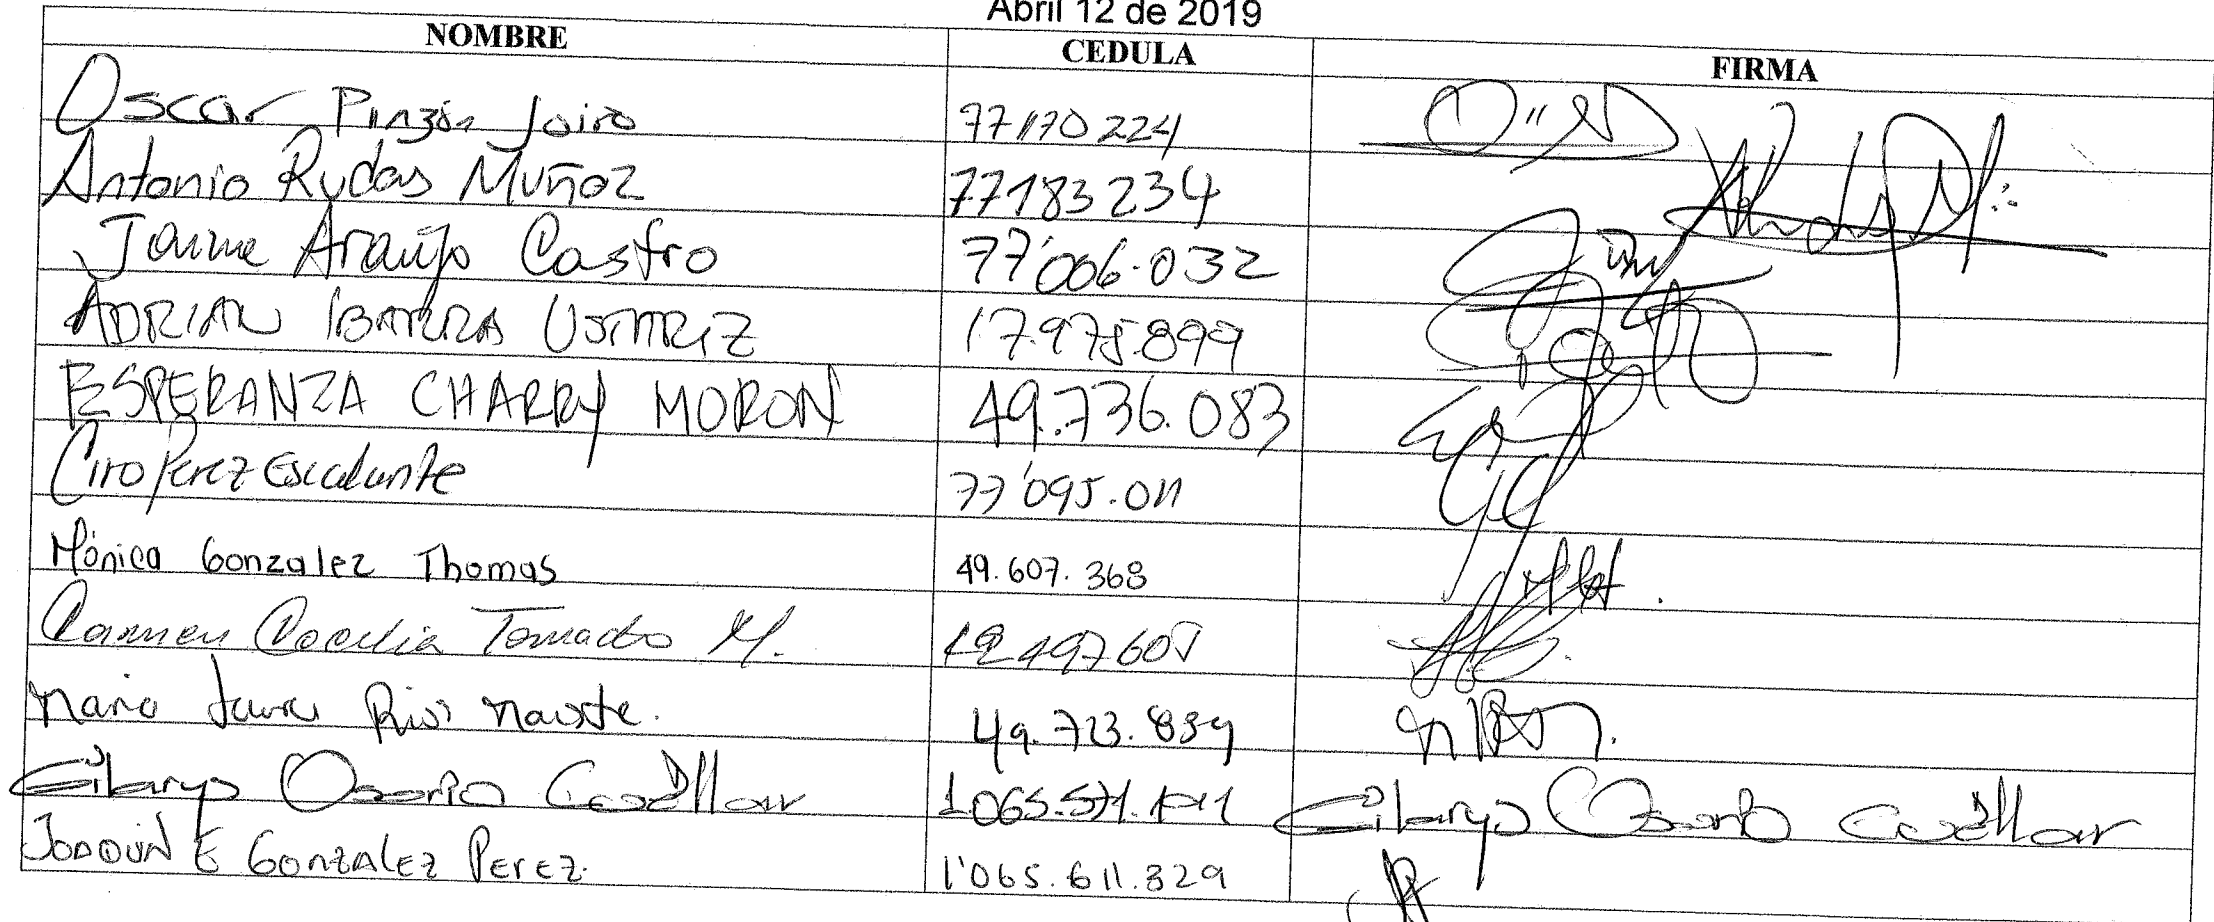 Abril 12 de 2019
NOMBRE CEDULA FIRMA
Oscar Pinzón Jairo 77170224
Antonio Rudas Muñoz 77183234
Jaime Araujo Castro 77'006.032
ADRIAN IBARRA USTARIZ 17.975.899
ESPERANZA CHARRY MORON 49.736.083
Ciro Perez Escalante 77'095.011
Mónica Gonzalez Thomas 49.607.368
Carmen Cecilia M.
Maria Rios 49.723.839
Osorio Cuéllar Osorio Cuéllar
JOAQUIN E GONZALEZ PEREZ. 1'065.611.329